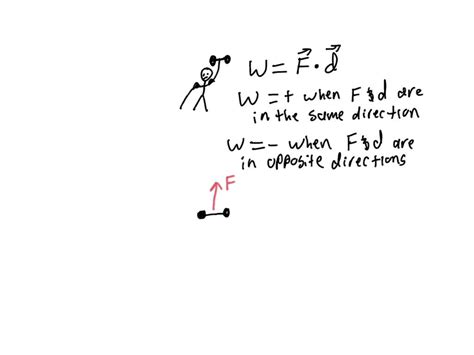 W = F⃗ · d⃗
W = + when F & d are
in the same direction
W = − when F & d are
in opposite directions
F